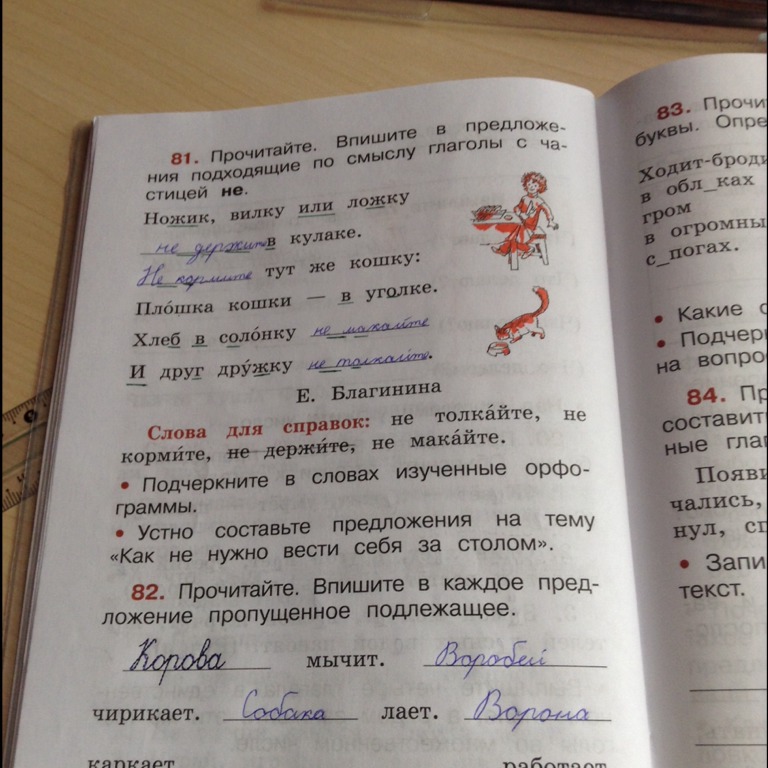 81. Прочитайте. Впишите в предложе-
ния подходящие по смыслу глаголы с ча-
стицей не.
Ножик, вилку или ложку
не держите в кулаке.
Не кормите тут же кошку:
Плóшка кошки — в уголке.
Хлеб в солóнку не макайте
И друг дрýжку не толкайте.
Е. Благинина
Слова для справок: не толкáйте, не
кормúте, не держúте, не макáйте.
• Подчеркните в словах изученные орфо-
граммы.
• Устно составьте предложения на тему
«Как не нужно вести себя за столом».
82. Прочитайте. Впишите в каждое пред-
ложение пропущенное подлежащее.
Корова мычит. Воробей
чирикает. Собака лает. Ворона
каркает. работает
83. Прочи
буквы. Опре
Ходит-броди
в обл_ках
гром
в огромны
с_погах.
• Какие
• Подчерк
на вопро
84. Пр
составит
ные глаг
Появи
чались,
нул, сп
• Запи
текст.